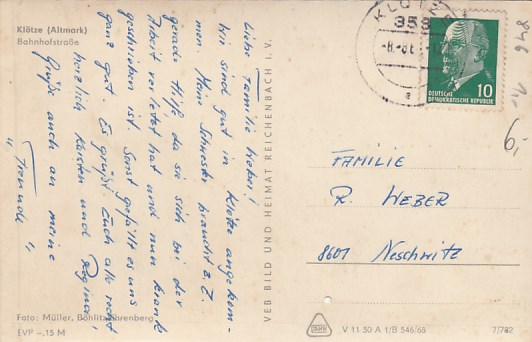 Klötze (Altmark)
Bahnhofstraße
Liebe Familie Weber!
Wir sind gut in Klötze angekom-
men. Meine Schwester braucht z. Z.
gerade Hilfe da sie sich bei der
Arbeit verletzt hat und nun krank
geschrieben ist. Sonst gefällt es uns
ganz gut. Es grüßt Euch alle recht
herzlich Karsten und Regina
Grüße auch an meine
"Freunde"
Foto: Müller, Böhlitz-Ehrenberg
EVP -,15 M
VEB BILD UND HEIMAT REICHENBACH I. V.
KLÖTZE
358
-8.-8
a
10
DEUTSCHE
DEMOKRATISCHE REPUBLIK
846
1,-
6,-
FAMILIE
R. WEBER
8601 Neschwitz
V 11 50 A 1/B 546/68
7/782